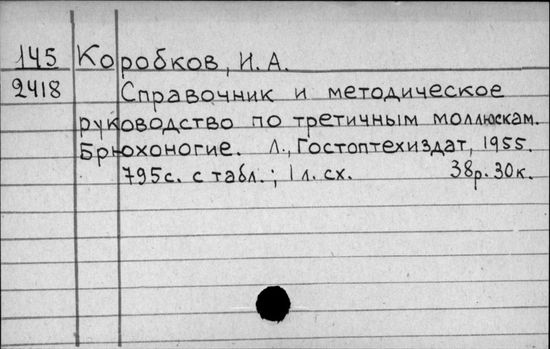 145 Коробков, И. А.
2418 Справочник и методическое
руководство по третичным моллюскам.
Брюхоногие. Л., Гостоптехиздат, 1955.
795с. с табл.; 1 л. сх. 38р. 30к.